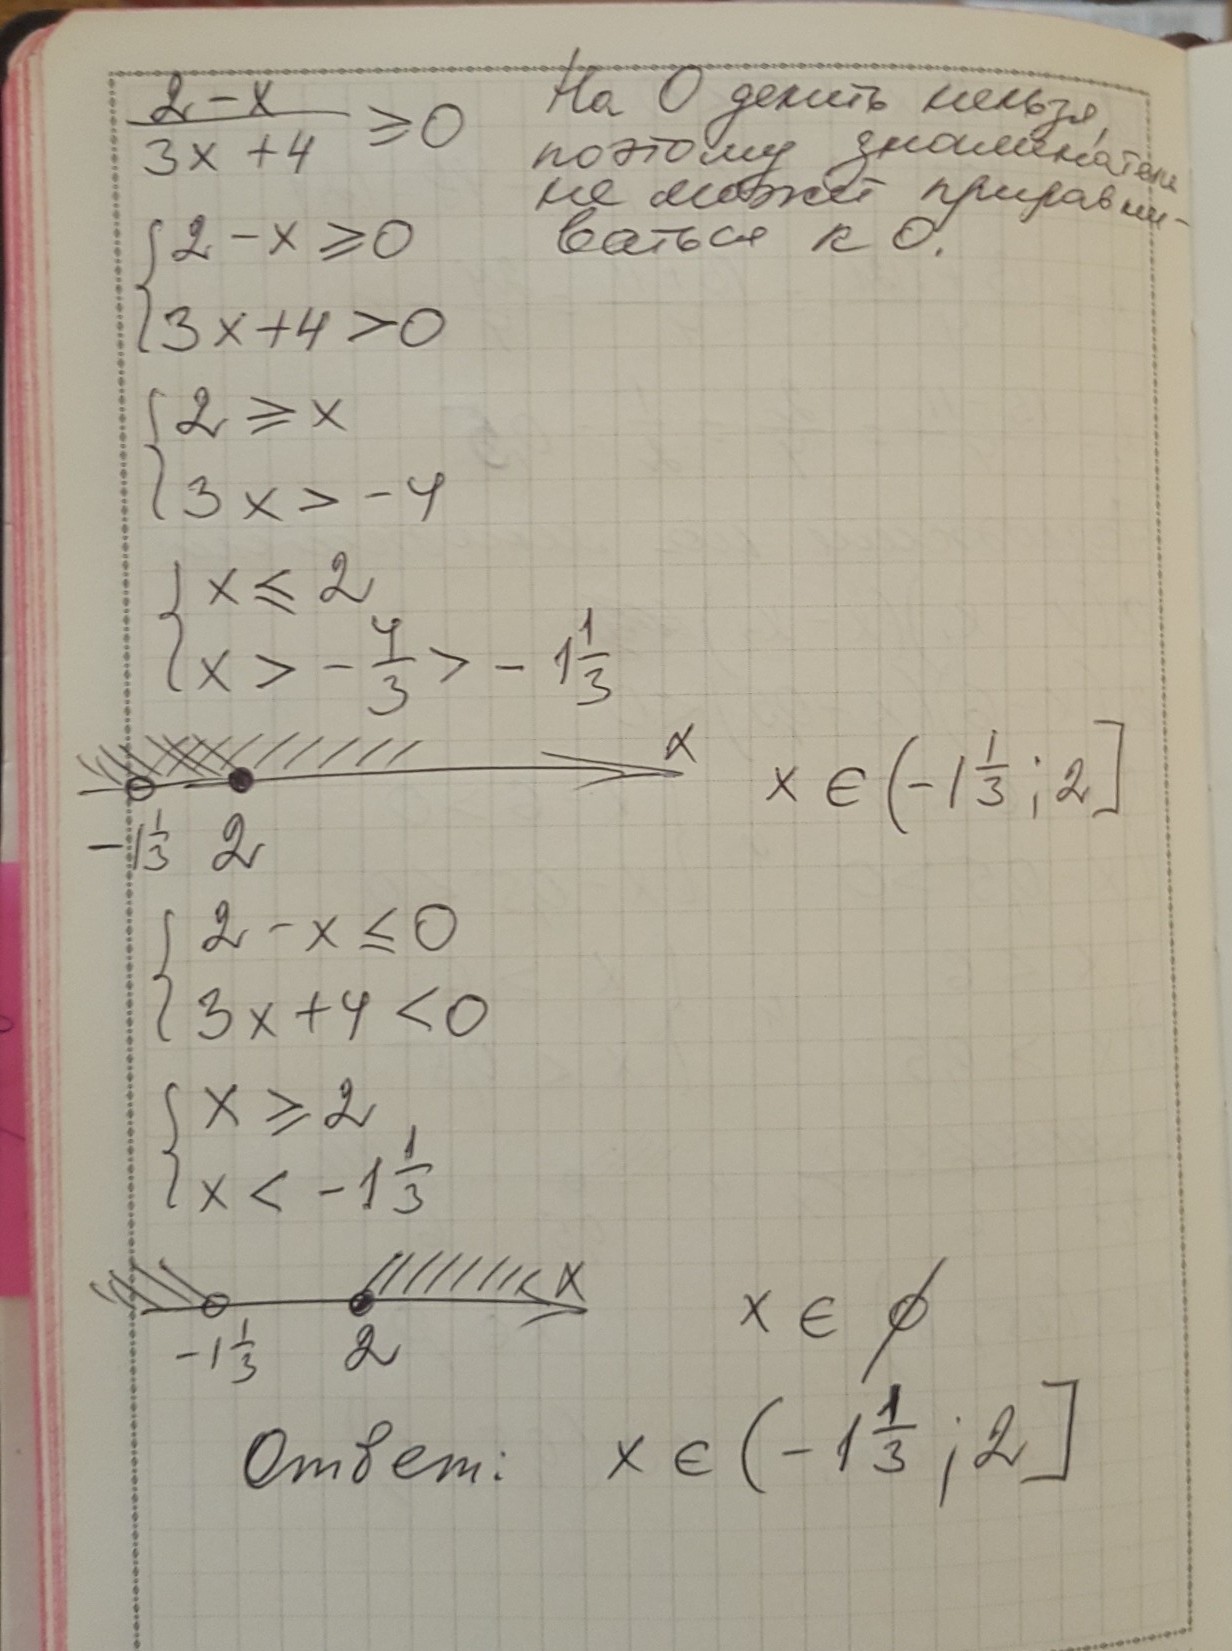 (2-x)/(3x+4) ≥0
На 0 делить нельзя,
поэтому знаменатель
не может приравни-
ваться к 0.
{2-x≥0
{3x+4>0
{2≥x
{3x>-4
{x≤2
{x>-4/3>-1 1/3
x
-1 1/3 2
x∈(-1 1/3;2]
{2-x≤0
{3x+4<0
{x≥2
{x<-1 1/3
x
-1 1/3 2
x∈∅
Ответ: x∈(-1 1/3;2]